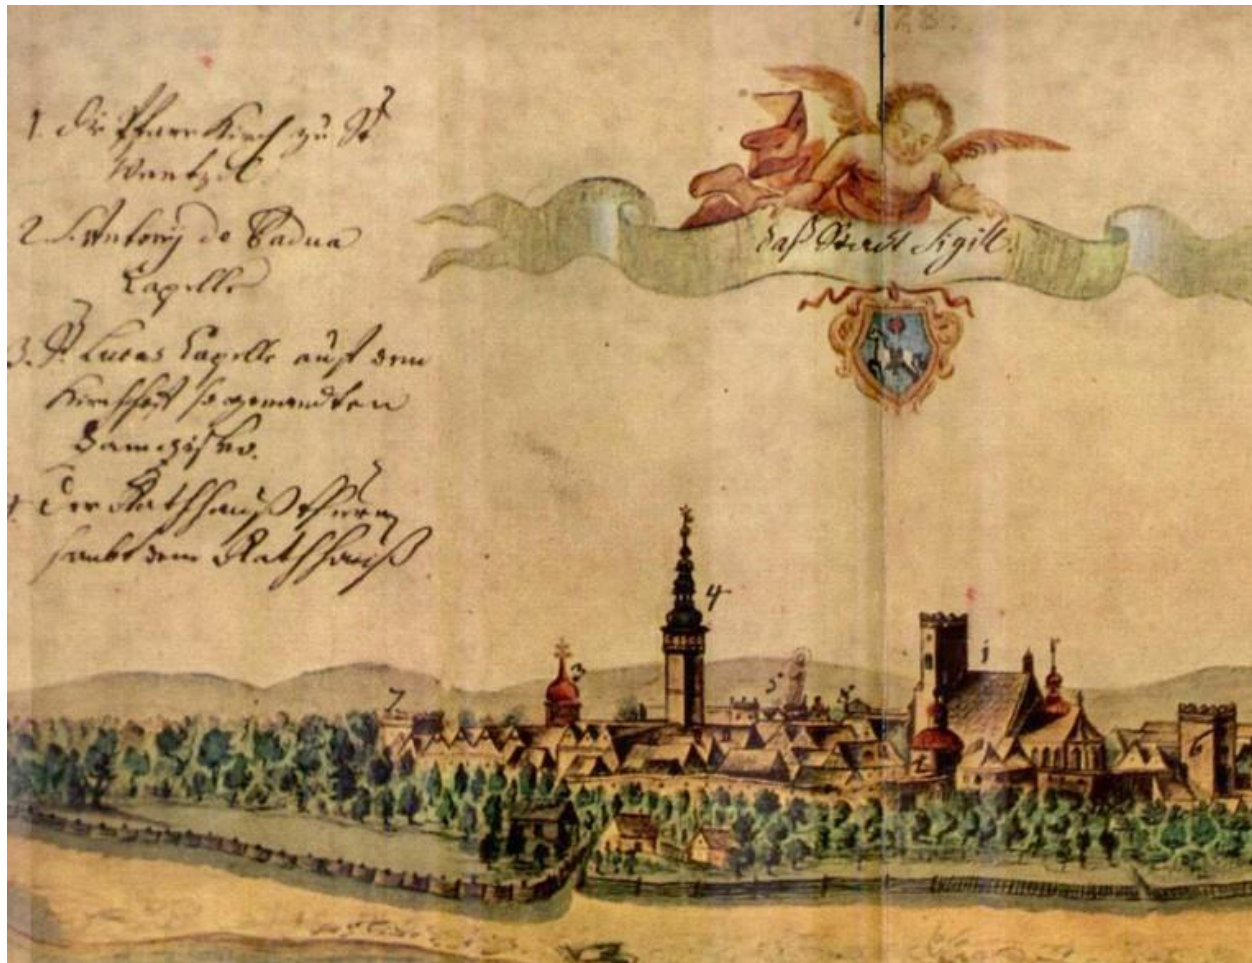 1. Die Pfarr Kirch zu St
Wentzel.
2 S. Antony de Padua
Capelle
3. St. Lucas Capelle auf dem
Kirchhoff so genandten
4. Der Rathhauß thurn
sambt dem Rathhauß
daß Stadt Sigill.
4
3
1
5
7
2